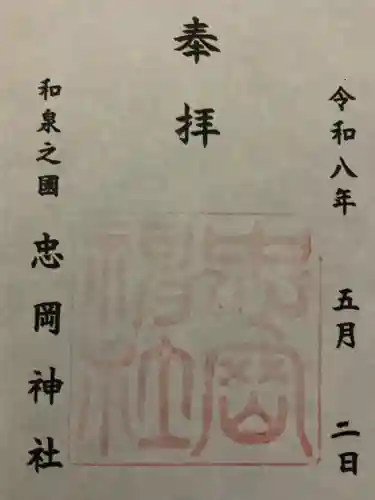 令和八年 五月 二日
奉拝
忠岡神社
和泉之國 忠岡神社